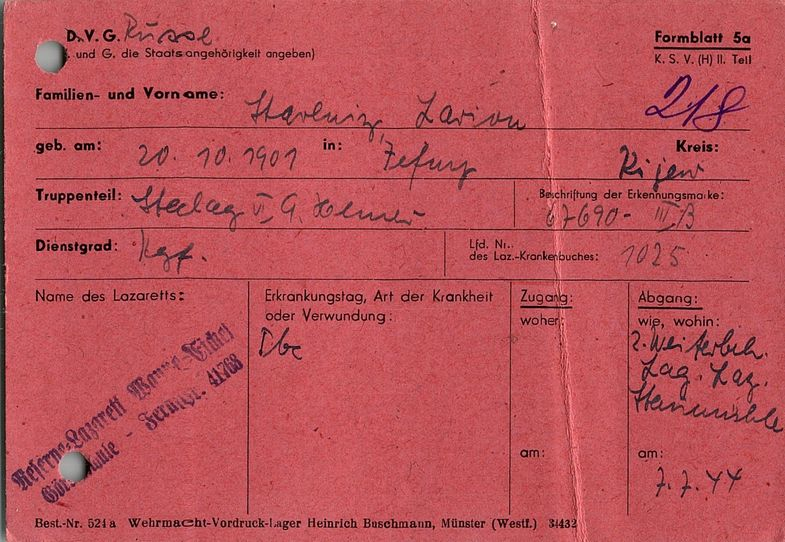 D.V.G. Russe
und G. die Staatsangehörigkeit angeben)
Formblatt 5a
K. S. V. (H) II. Teil
Familien- und Vorname: Larion
218
geb. am: 20. 10. 1901 in:
Kreis: Kijew
Truppenteil: Stalag VI A Hemer
Beschriftung der Erkennungsmarke:
67690- III B
Dienstgrad: Kgf.
Lfd. Nr.
des Laz.-Krankenbuches: 1025
Name des Lazaretts:
Reserve-Lazarett Wanne-Eickel
- Fernspr. 41768
Erkrankungstag, Art der Krankheit
oder Verwundung:
Tbc
Zugang:
woher:
am:
Abgang:
wie, wohin:
z. Weiterbeh.
Lag. Laz.
Staumühle
am:
7.7.44
Best.-Nr. 524a Wehrmacht-Vordruck-Lager Heinrich Buschmann, Münster (Westf.) 34432